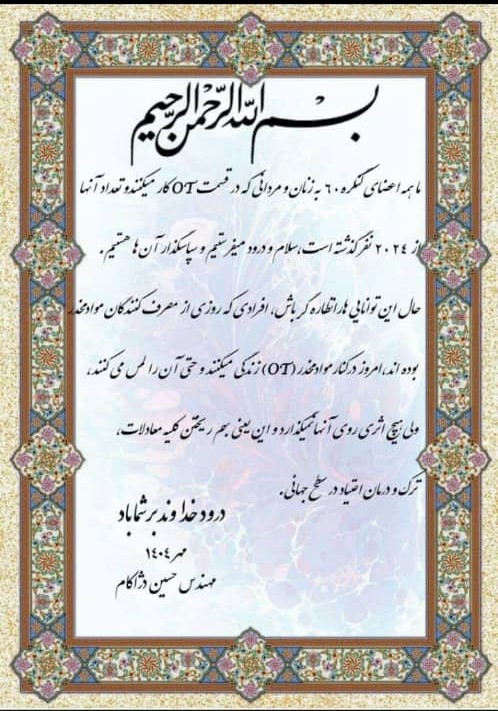 بسم الله الرحمن الرحیم
ما همه اعضای کنگره ٦٠ به زنان و مردانی که در قسمت OT کار میکنند و تعداد آنها
از ٢٠٢٤ نفر گذشته است، سلام و درود میفرستیم و سپاسگذار آن ها هستیم.
حال این توانایی ها را نظاره گر باش، افرادی که روزی از مصرف کنندگان موادمخدر
بوده اند، امروز در کنار موادمخدر (OT) زندگی میکنند و حتی آن را لمس می کنند،
ولی هیچ اثری روی آنها نمیگذارد و این یعنی بهم ریختن کلیه معادلات،
ترک و درمان اعتیاد در سطح جهانی.
درود خداوند بر شما باد
مهر ١٤٠٤
مهندس حسین دژاکام